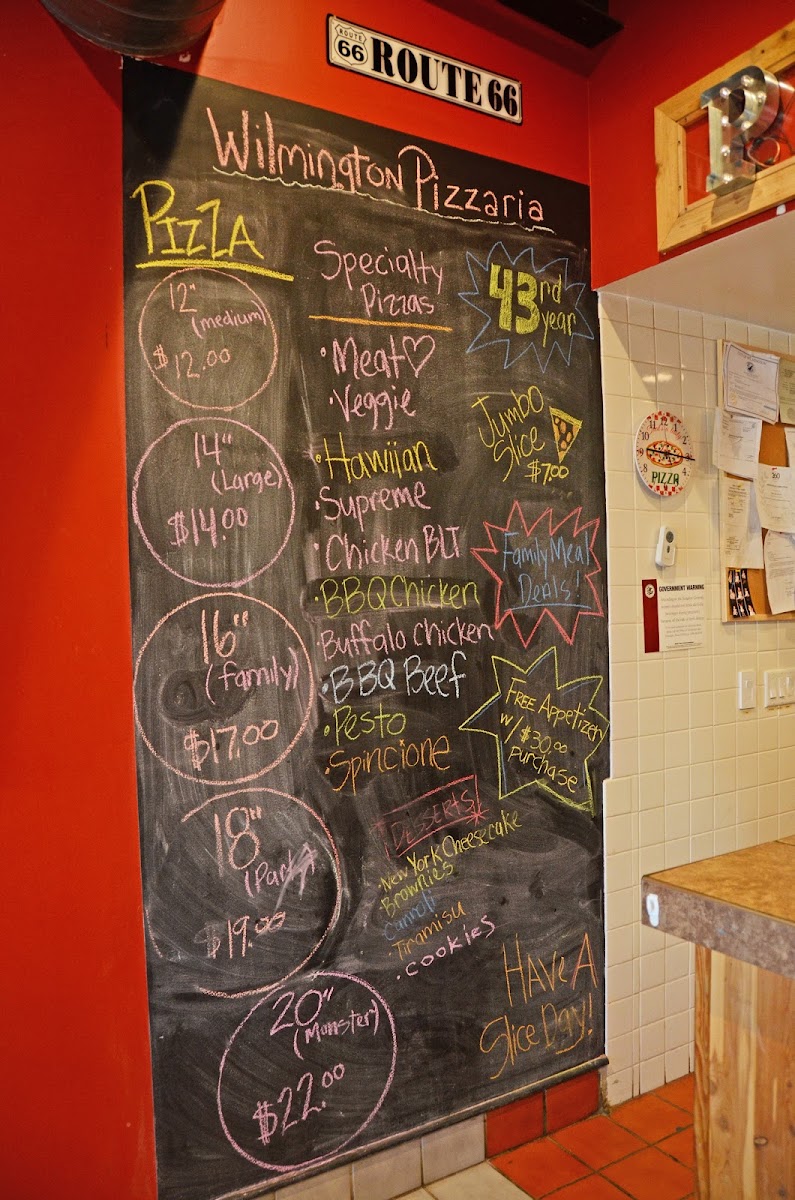 ROUTE
66
ROUTE 66
Wilmington Pizzaria
PIZZA
12"
(medium)
$12.00
14"
(Large)
$14.00
16"
(family)
$17.00
18"
(Party)
$19.00
20"
(Monster)
$22.00
Specialty
Pizzas
• Meat♡
• Veggie
• Hawiian
• Supreme
• Chicken BLT
• BBQ Chicken
• Buffalo Chicken
• BBQ Beef
• Pesto
• Spincione
DESSERTS
• New York Cheesecake
• Brownies
Cannoli
• Tiramisu
• cookies
43rd
year
Jumbo
Slice
$7.00
Family Meal
Deals!
FREE Appetizer
w/ $30.00
purchase
HAVE A
Slice Day!
P
PIZZA
GOVERNMENT WARNING